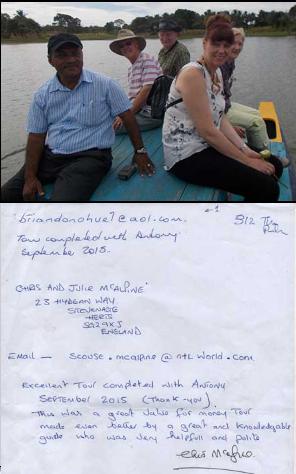 briandonohue7@aol.com.
Tour completed with Antony
September 2015.
CHRIS AND JULIE MCALPINE
23 HYDEAN WAY
STEVENAGE
HERTS
SG2 9XJ
ENGLAND
EMAIL — scouse.mcalpine@ntlworld.com
Excellent Tour completed with Antony
SEPTEMBER 2015 (Thank you)
This was a great value for money Tour
made even better by a great and knowledgable
guide who was very helpfull and polite
Chris McAlpine